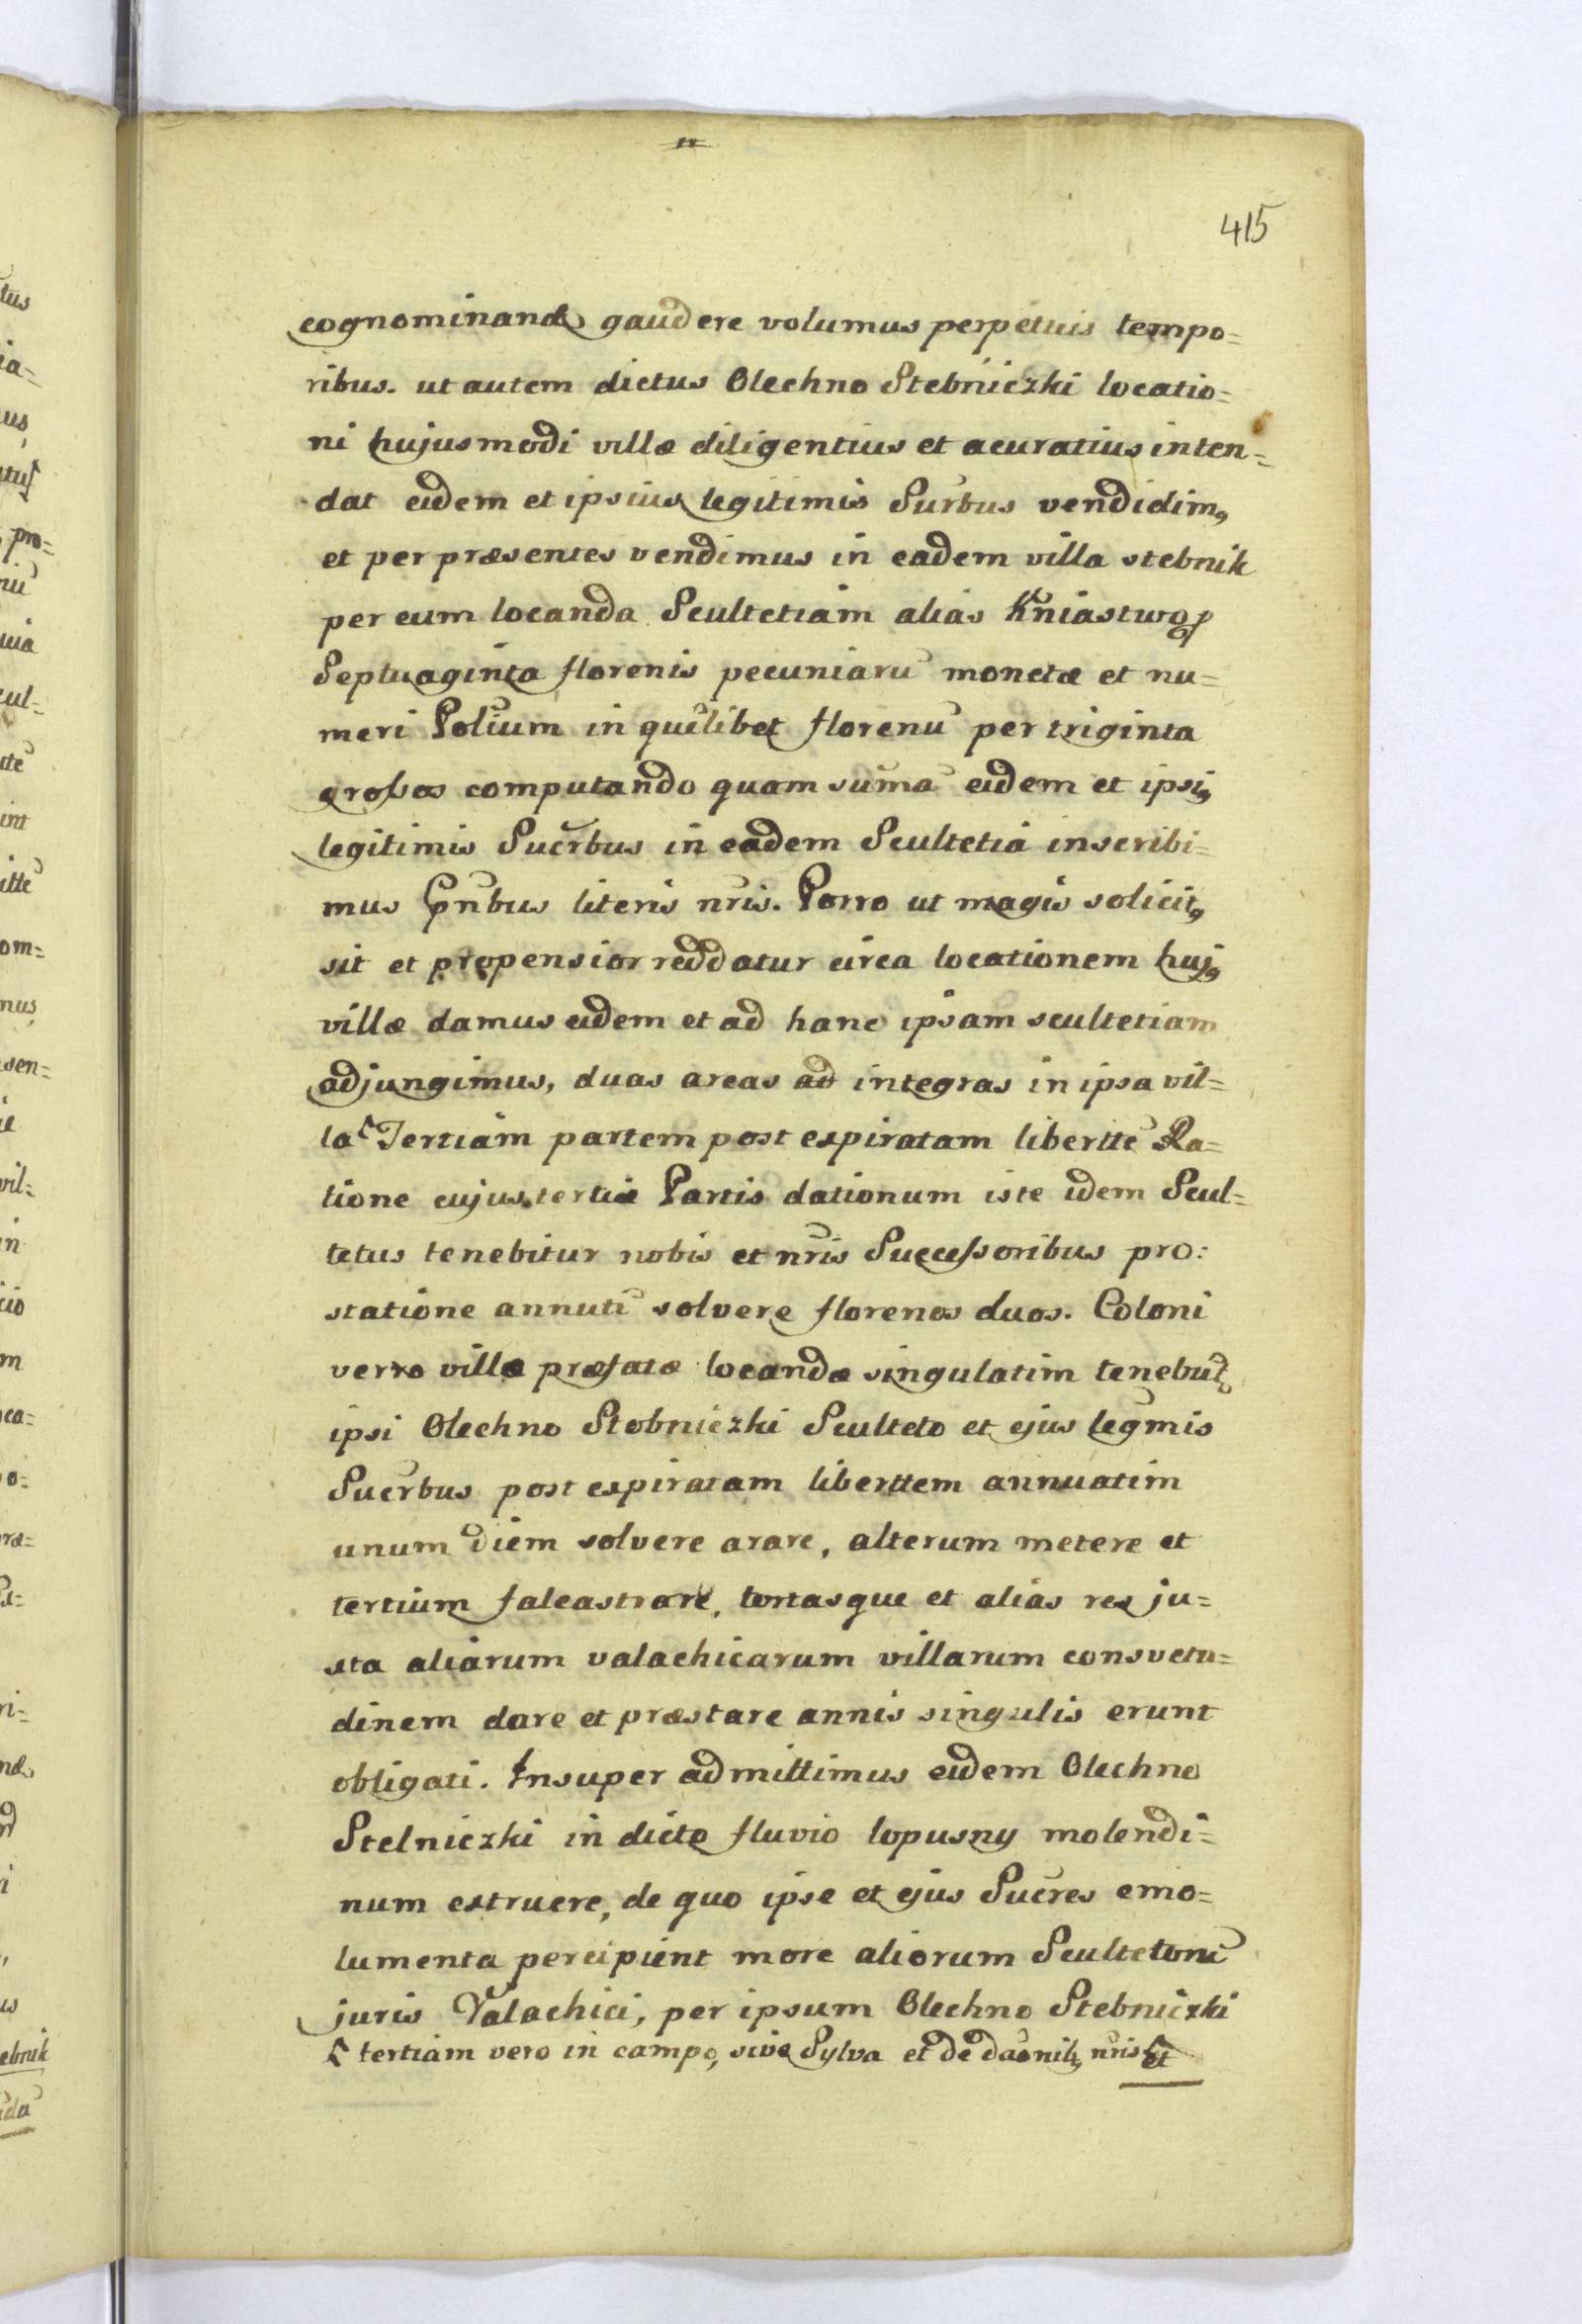 415
cognominandæ gaudere volumus perpetuis tempo=
ribus. ut autem dictus Olechno Stebniczki locatio=
ni hujusmodi villæ diligentius et acuratius inten=
dat eidem et ipsius legitimis Surbus vendidim9
et per præsentes vendimus in eadem villa stebnik
per eum locanda Scultetiam alias Kniastwo
Septuaginta florenis pecuniarū monetæ et nu=
meri Polium in quēlibet florenū per triginta
grossos computando quam sumā eidem et ipsi9
legitimis Sucrbus in eadem Scultetia inscribi=
mus pnbus literis nris. Porro ut magis solicit9
sit et propensior reddatur circa locationem huj9
villæ damus eidem et ad hanc ipsam scultetiam
adjungimus, duas areas ad integras in ipsa vil=
la Tertiam partem post expiratam libertte Ra=
tione cujus tertiæ Partis dationum iste idem Scul=
tetus tenebitur nobis et nris Successoribus pro:
statione annuti solvere florenos duos. Coloni
verro villæ præfatæ locandæ singulatim tenebut
ipsi Olechno Stobniczki Sculteto et ejus legmis
Sucrbus post expiratam liberttem annuatim
unum diem solvere arare, alterum metere et
tertium falcastrare, tortasque et alias res ju=
sta aliarum valachicarum villarum consvetu=
dinem dare et præstare annis singulis erunt
obligati. Insuper admittimus eidem Olechno
Stelniczki in dicto fluvio lopusny molendi=
num extruere, de quo ipse et ejus Sucres emo=
lumenta percipient more aliorum Scultetorū
juris Valachici, per ipsum Olechno Stebniczki
tertiam vero in campo, sive Sylva et de nris
et